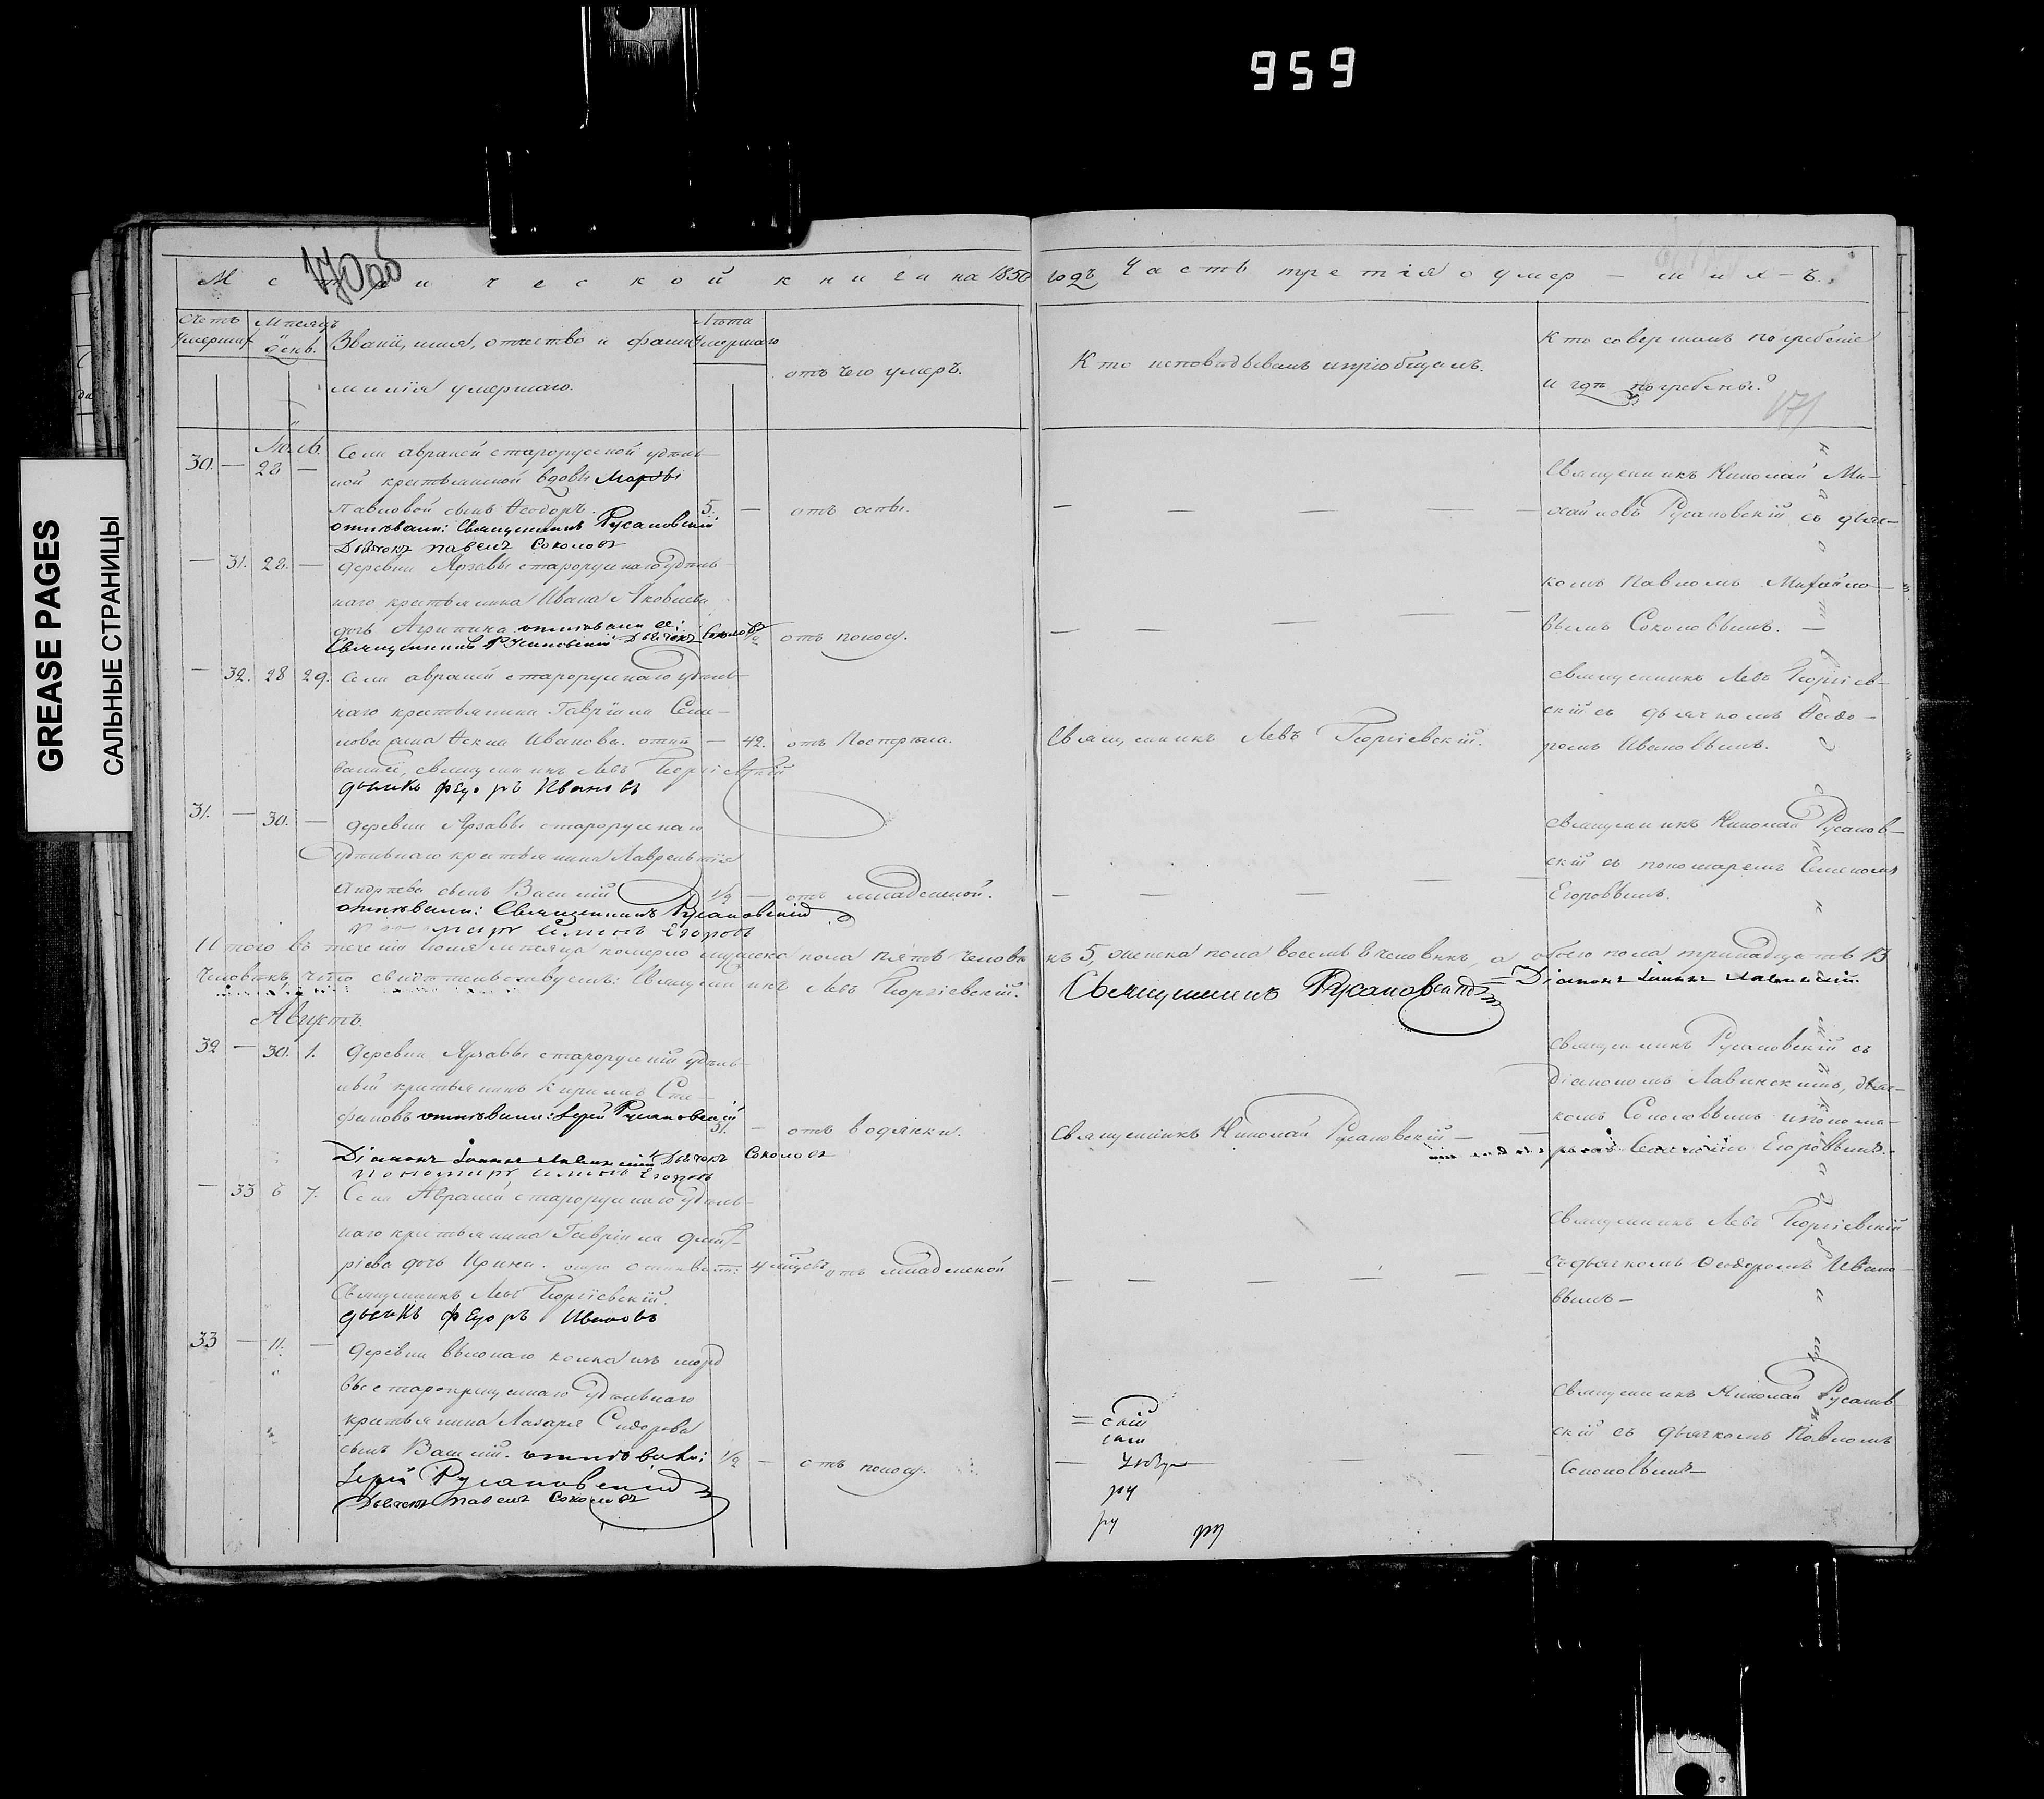 959
GREASE PAGES
САЛЬНЫЕ СТРАНИЦЫ
170об
Метрической книги на 1850 годъ Часть третія о умер-шихъ.
171
Счетъ умершихъ
Мѣсяцъ и день.
Званіе, имя, отчество и фами
милія умершаго.
Лѣта умершаго
отъ чего умеръ.
Кто исповѣдывалъ и пріобщалъ.
Кто совершалъ погребеніе
и гдѣ погребены?
Іюль.
30. — 28 —
Села авраней старорусской удѣль
ной крестьянской вдовы Марѳы
Павловой сынъ Ѳеодоръ. 5. — отъ оспы.
отпѣвали: Священникъ Русановскій
Дьячокъ павелъ Соколовъ
Священникъ Николай Ми-
хайловъ Русановскій съ дьяч-
комъ Павломъ Михайло-
вымъ Соколовымъ. —
— 31. 28. — деревни Арзавы старорускаго удѣль
наго крестьянина Ивана Яковлева
дочь Агрипина. отпѣвали ее:
Священникъ Русановскій Дьячокъ Соколовъ 1/2 отъ поносу.
— 32. 28 29. Села авраней старорускаго удѣль
наго крестьянина Гавріила Семе-
нова жена Ѳекла Иванова. отпѣ — 42. отъ
вали, священникъ Левъ Георгіевскій
дьячкъ Федоръ Ивановъ
Священникъ Левъ Георгіевскій.
Священникъ Левъ Георгіев-
скій съ дьячкомъ Ѳеодо-
ромъ Ивановымъ.
31. — 30. — деревни Арзавы старорускаго
удѣльнаго крестьянина Лаврентія
Андреева сынъ Василій 1/2 — отъ младенской.
отпѣвали: Священникъ Русановскій
пономарь Семенъ Егоровъ
Священникъ Николай Русанов-
скій съ пономаремъ Семеномъ
Егоровымъ.
Итого въ теченіи Іюля мѣсяца померло мужеска пола пять человѣкъ 5, женска пола восемь 8 человѣкъ, а обоего пола тринадцать 13
человѣкъ, что свидѣтельствуемъ: Священникъ Левъ Георгіевскій. Священникъ Русановскій = Діаконъ Іоаннъ Лавинскій.
Августъ.
32 — 30. 1. деревни Арзавы старорускій удѣль
ный крестьянинъ Кирилъ Сте
фановъ отпѣвали: Іерей Русановскій 51. — отъ водянки.
Діаконъ Іоаннъ Лавинскій Дьячокъ Соколовъ
пономарь Семенъ Егоровъ
Священникъ Николай Русановскій —
Священникъ Русановскій съ
діакономъ Лавинскимъ, дьяч-
комъ Соколовымъ и понома-
ремъ Семеномъ Егоровымъ.
— 33 6 7. Села Авраней старорускаго удѣль
наго крестьянина Гавріила Дмит-
ріева дочь Ирина. отпѣвали: 4 мѣсцевъ отъ младенской
Священникъ Левъ Георгіевскій.
дьячкъ Федоръ Ивановъ
Священникъ Левъ Георгіевскій
съ дьячкомъ Ѳеодоромъ Ивано-
вымъ —
33 — 11. — деревни колка изъ морд
вы старокрещенаго удѣльнаго
крестьянина Лазаря Сидорова
сынъ Василій. отпѣвали: 1/2 — отъ поносу.
Іерей Русановскій
Дьячокъ павелъ Соколовъ
Священникъ Николай Русанов
скій съ дьячкомъ Павломъ
Соколовымъ —
= скій
ру
ру
ру